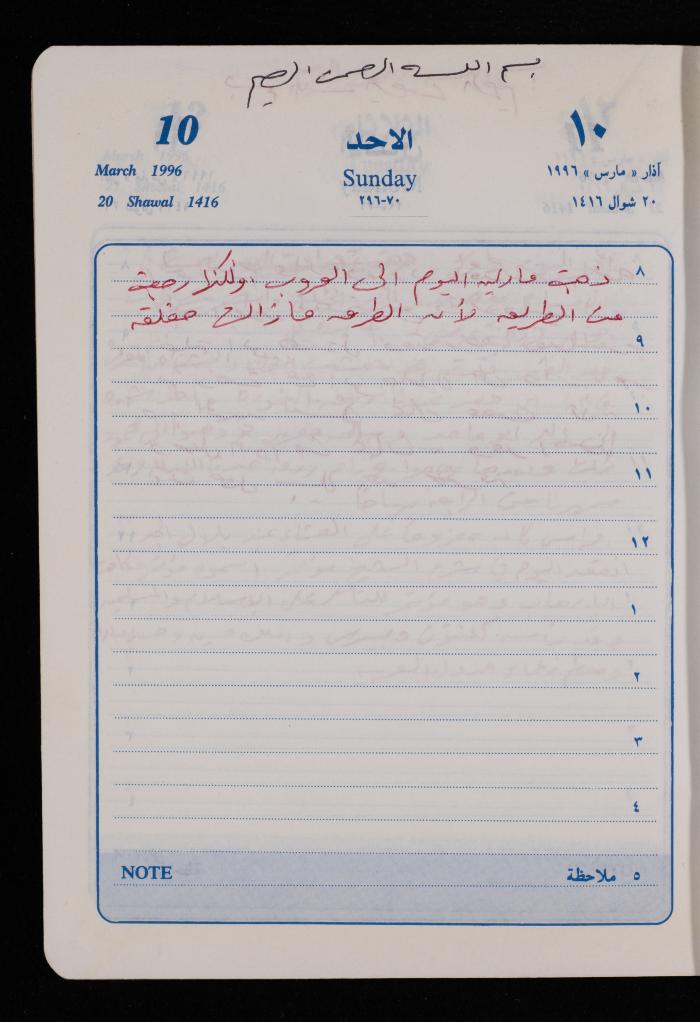 بسم الله الرحمن الرحيم
10 الاحد ١٠
March 1996 Sunday آذار « مارس » ١٩٩٦
20 Shawal 1416 ٧٠-٢٩٦ ٢٠ شوال ١٤١٦
٨ ذهبت مارلين اليوم الى العروب ولكنها رجعت
من الطريق لأن الطرق مازالت مغلقة
٩
١٠
١١
١٢
١
٢
٣
٤
NOTE ملاحظة ٥